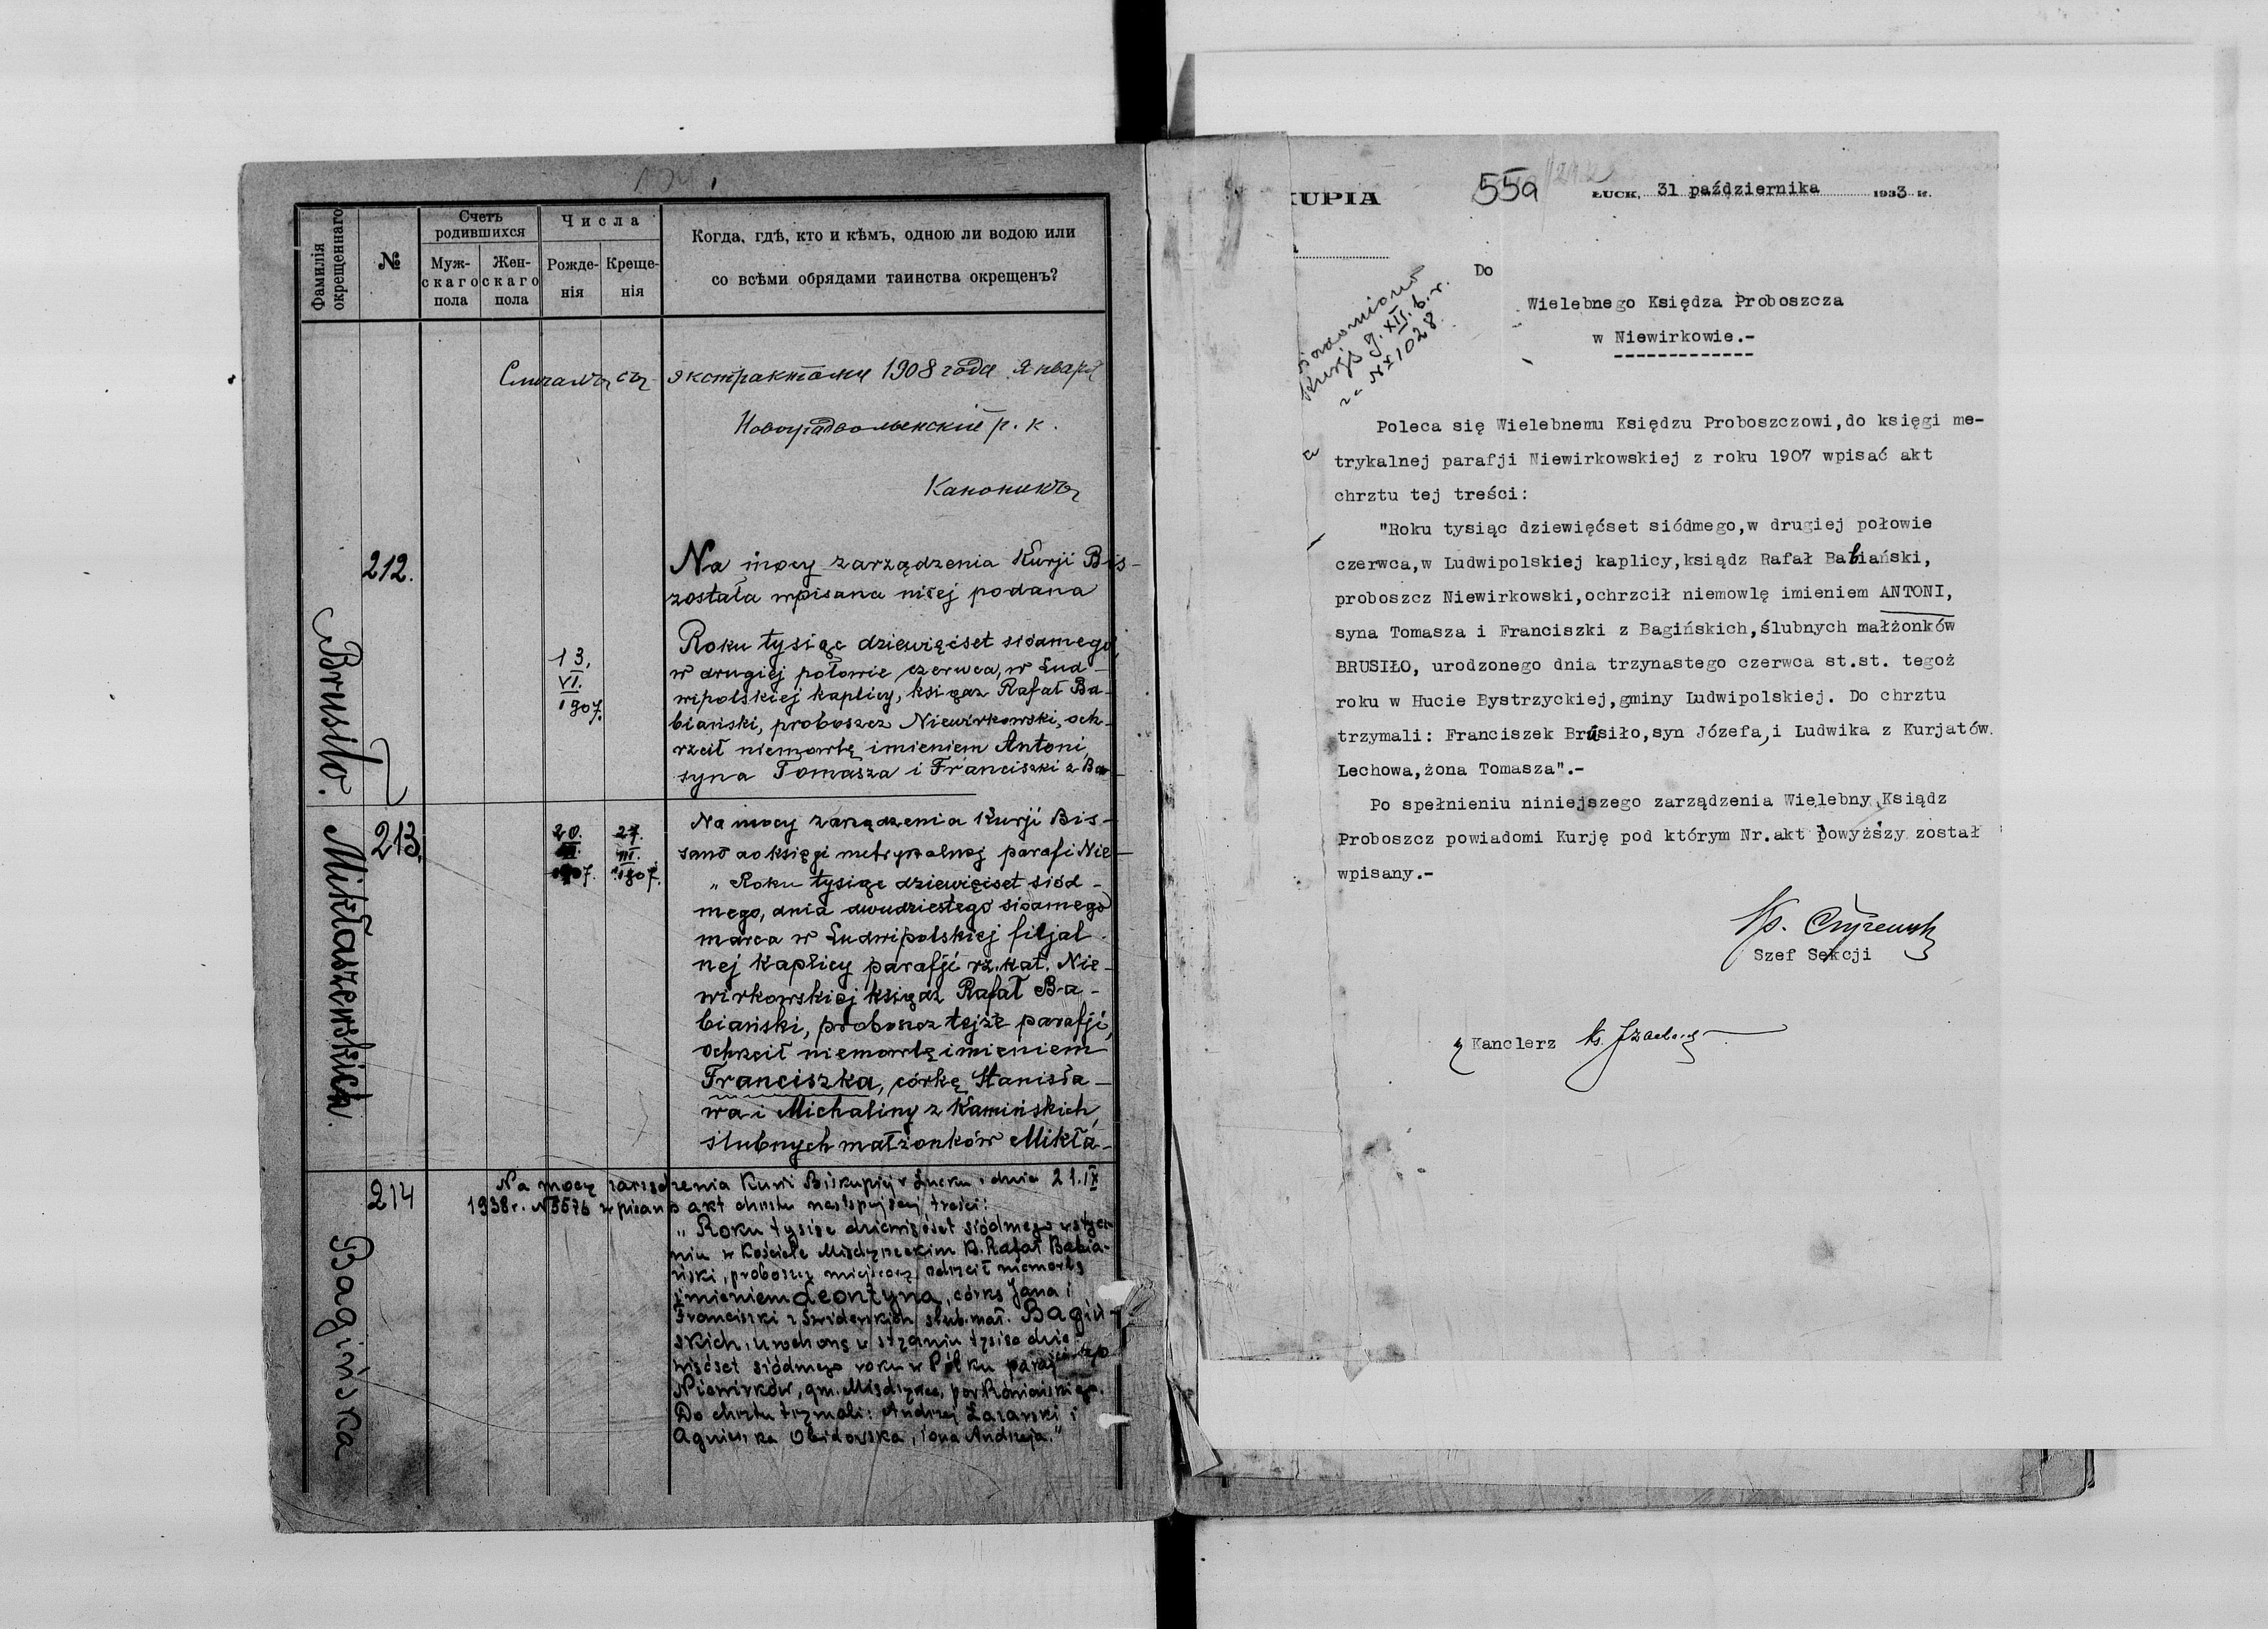 Фамилія окрещеннаго
№
Счетъ родившихся
Муж-скаго пола
Жен-скаго пола
Числа
Рожде-нія
Креще-нія
Когда, гдѣ, кто и кѣмъ, одною ли водою или
со всѣми обрядами таинства окрещенъ?
экстрактомъ 1908 года Января
р. к.
Каноникъ
212.
Brusiło.
13.
VI.
1907.
Na mocy zarządzenia Kurji Bis-
została wpisana niżej podana
Roku tysiąc dziewięćset siódmego,
w drugiej połowie czerwca, w Lud-
wipolskiej kaplicy, ksiądz Rafał Ba-
biański, proboszcz Niewirkowski, och-
rzcił niemowlę imieniem Antoni,
syna Tomasza i Franciszki z Ba-
213.
Mikłaszewskich.
20.
III.
1907.
27.
III.
1907.
Na mocy zarządzenia Kurji Bis-
sano do księgi metrykalnej parafi Nie-
„Roku tysiąc dziewięćset siód-
mego, dnia dwudziestego siódmego
marca w Ludwipolskiej filjal-
nej kaplicy parafji rz. kat. Nie-
wirkowskiej ksiądz Rafał Ba-
biański, proboszcz tejże parafji,
ochrzcił niemowlę imieniem
Franciszka, córkę Stanisła-
wa i Michaliny z Kamińskich,
ślubnych małżonków Mikła-
214
Bagińska
Na mocy zarządzenia Kurii Biskupiej w Łucku z dnia 21.IX
1938 r. N 5576 wpisano akt chrztu następującej treści:
„Roku tysiąc dziewięćset siódmego w stycz-
niu w Kościele Międzyrzeckim Ks. Rafał Babia-
ński, proboszcz miejscowy ochrzcił niemowlę
imieniem Leontyna, córkę Jana i
Franciszki z Świderskich ślub. mał. Bagiń-
skich, urodzoną w styczniu tysiąc dzie-
więćset siódmego roku w Pólku parafji
Niewirków, gm. Międzyrzec, pow. Rówieńskiego.
Do chrztu trzymali: Andrzej Łazarski i
Agnieszka Obidowska, żona Andrzeja."
KUPIA
559
ŁUCK, 31 października 1933 r.
Kurję 9. XII. b. r.
za № 1028
Do
Wielebnego Księdza Proboszcza
w Niewirkowie.-
Poleca się Wielebnemu Księdzu Proboszczowi,do księgi me-
trykalnej parafji Niewirkowskiej z roku 1907 wpisać akt
chrztu tej treści:
"Roku tysiąc dziewięćset siódmego,w drugiej połowie
czerwca,w Ludwipolskiej kaplicy,ksiądz Rafał Babiański,
proboszcz Niewirkowski,ochrzcił niemowlę imieniem ANTONI,
syna Tomasza i Franciszki z Bagińskich,ślubnych małżonków
BRUSIŁO, urodzonego dnia trzynastego czerwca st.st. tegoż
roku w Hucie Bystrzyckiej,gminy Ludwipolskiej. Do chrztu
trzymali: Franciszek Brusiło,syn Józefa,i Ludwika z Kurjatów
Lechowa,żona Tomasza".-
Po spełnieniu niniejszego zarządzenia Wielebny Ksiądz
Proboszcz powiadomi Kurję pod którym Nr.akt powyższy został
wpisany.-
Szef Sekcji
Kanclerz